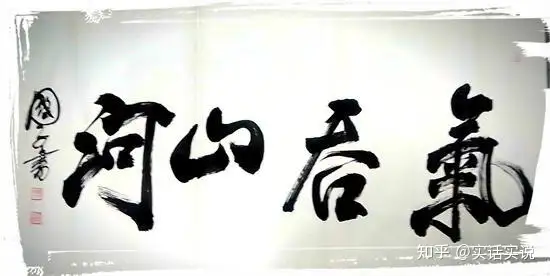 氣吞山河
知乎 @实话实说